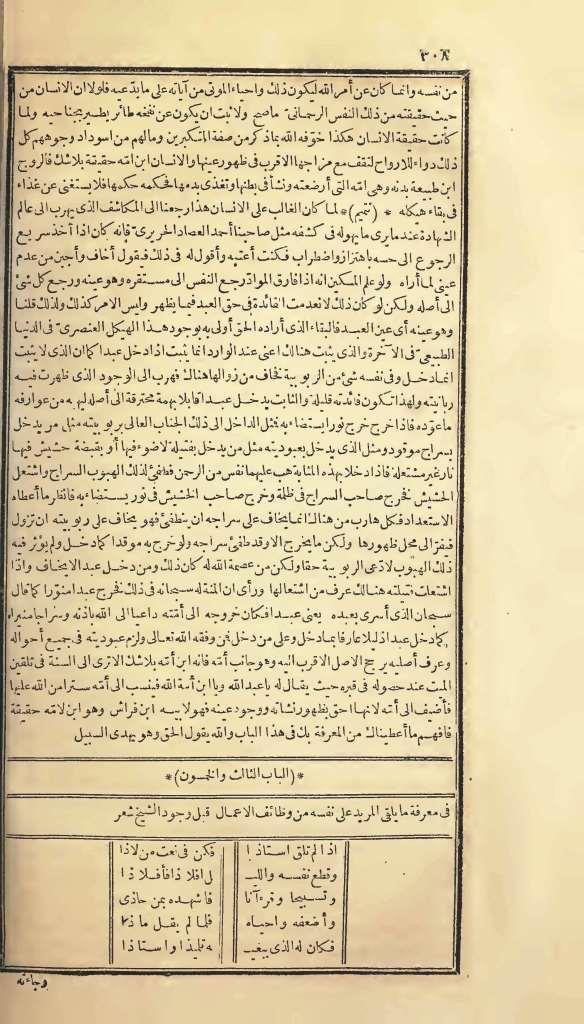 ٣٠٨
من نفسه وانما كان عن أمر الله ليكون ذلك واحياء الموتى من آياته على ما يدّعيه فلولا ان الانسان من
حيث حقيقته من ذلك النفس الرحمانى ما صح ولا ثبت ان يكون عن نفخه طائر يطير بجناحيه ولما
كانت حقيقة الانسان هكذا خوّفه الله بما ذكر من صفة المتكبرين ومالهم من اسوداد وجوههم كل
ذلك دواء للارواح لتقف مع مزاجها الاقرب فى ظهور عينها والانسان ابن امّه حقيقة بلا شك فالروح
ابن طبيعة بدنه وهى امّه التى أرضعته ونشأ فى بطنها وتغذى بدمها فحكمه حكمها فلا يستغنى عن غذاء
فى بقاء هيكله * (تتميم) * لما كان الغالب على الانسان هذا رجعنا الى المكاشف الذى يهرب الى عالم
الشهادة عند ما يرى ما يهوله فى كشفه مثل صاحبنا أحمد العصاد الحريرى فإنه كان اذا أخذ سريع
الرجوع الى حسه باهتزاز واضطراب فكنت أعتبه وأقول له فى ذلك فيقول أخاف وأجبن من عدم
عينى لما أراه ولو علم المسكين انه اذا فارق المواد رجع النفس الى مستقره وهو عينه ورجع كل شئ
الى أصله ولكن لو كان ذلك لانعدمت الفائدة فى حق العبد فيما يظهر وليس الامر كذلك ولذلك قلنا
وهو عينه أى عين العبد فالبقاء الذى أراده الحق أولى به بوجود هذا الهيكل العنصرى فى الدنيا
الطبيعى فى الآخرة والذى يثبت هنالك اعنى عند الوارد انما يثبت اذا دخل عبدا كما ان الذى لا يثبت
انما دخل وفى نفسه شئ من الربوبية فخاف من زوالها هناك فهرب الى الوجود الذى ظهرت فيه
ربانيته ولهذا تكون فائدته قليلة والثابت يدخل عبدا قابلا بهمة محترقة الى أصله ليهبه من عوارفه
ما عوّده فاذا خرج خرج نورا يستضاء به فمثل الداخل الى ذلك الجناب العالى بربوبيته مثل من يدخل
بسراج موقود ومثل الذى يدخل بعبوديته مثل من يدخل بفتيلة لا ضوء فيها أو بقبضة حشيش فيها
نار غير مشتعلة فاذا دخلا بهذه المثابة هب عليهما نفس من الرحمن فطفئ لذلك الهبوب السراج واشتعل
الحشيش فخرج صاحب السراج فى ظلمة وخرج صاحب الحشيش فى نور يستضاء به فانظر ما أعطاه
الاستعداد فكل هارب من هناك انما يخاف على سراجه ان ينطفئ فهو يخاف على ربوبيته ان تزول
فيفرّ الى محل ظهورها ولكن ما يخرج الا وقد طفئ سراجه ولو خرج به موقدا كما دخل ولم يؤثر فيه
ذلك الهبوب لادّعى الربوبية حقا ولكن من عصمة الله له كان ذلك ومن دخل عبدا لا يخاف واذا
اشتعلت فتيلته هنالك عرف من اشتعالها ورأى ان المنة له سبحانه فى ذلك فخرج عبدا منوّرا كما قال
سبحان الذى أسرى بعبده يعنى عبدا فكان خروجه الى أمّته داعيا الى الله باذنه وسراجا منيرا
كما دخل عبدا ذليلا عارفا بما دخل وعلى من دخل فمن وفقه الله تعالى ولزم عبوديته فى جميع أحواله
وعرف أصليه يرجح الاصل الاقرب اليه وهو جانب أمّه فانه ابن أمّه بلا شك الا ترى الى السنة فى تلقين
الميت عند حصوله فى قبره حيث يقال له يا عبد الله ويا ابن أمة الله فينسب الى أمّه سترا من الله عليها
فأضيف الى أمّه لانها احق بظهور نشأته ووجود عينه فهو لابيه ابن فراش وهو ابن لامّه حقيقة
فافهم ما أعطيناك من المعرفة بك فى هذا الباب والله يقول الحق وهو يهدى السبيل
*(الباب الثالث والخمسون)*
فى معرفة ما يلقى المريد على نفسه من وظائف الاعمال قبل وجود الشيخ شعر
اذا لم تلق استاذا فكن فى نعت من لاذا
وقطع نفسه والليـ ـل افلاذا فأفلاذا
وتسبيحا وقرءآنا فاشهده بمن حاذى
وأضعفه واحياه فلما لم يقل ماذا
فكان له الذى يبغيـ ـه تليذا واستاذا
وجاءته